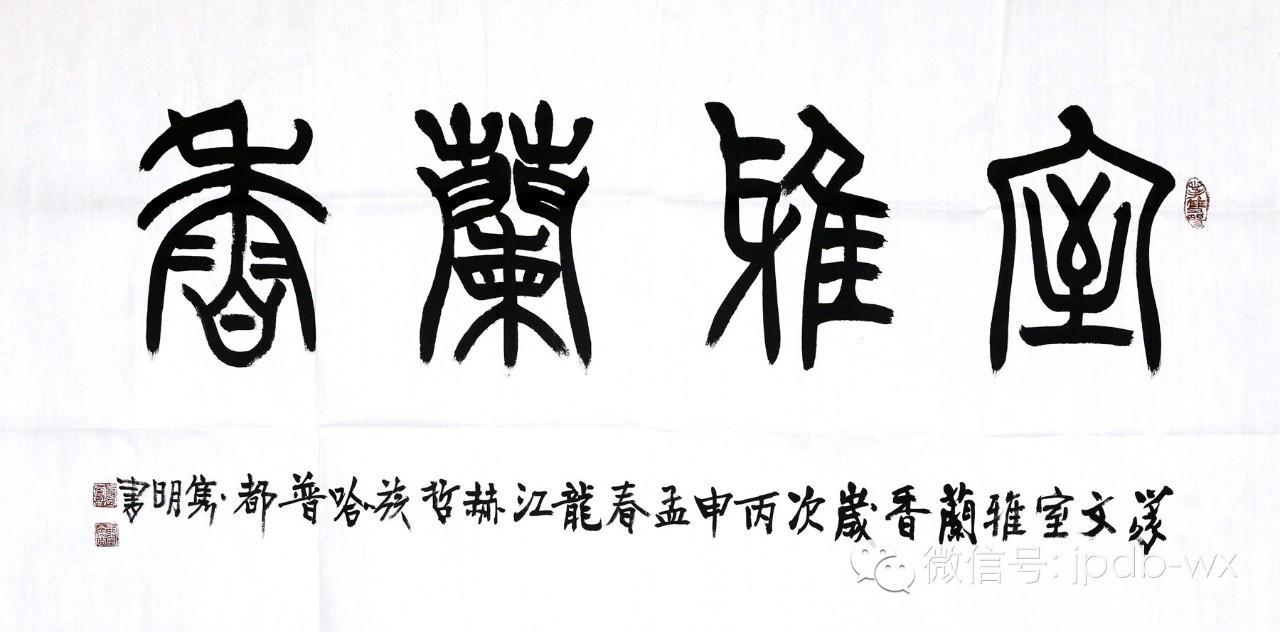 室雅蘭香
篆文室雅蘭香歲次丙申孟春龍江赫哲族哈普都·隽明書
微信号: jpdb-wx